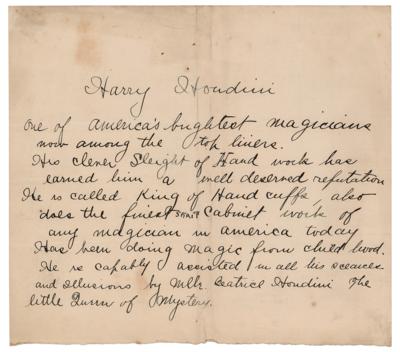 Harry Houdini
One of America's brightest magicians
now among the top liners.
His clever Sleight of Hand work has
earned him a well deserved reputation
He is called King of Handcuffs, also
does the finest Cabinet work of
any magician in america today
Has been doing magic from child hood.
He is capably assisted in all his seances
and Illusions by Mlle. Beatrice Houdini The
little Queen of Mystery.